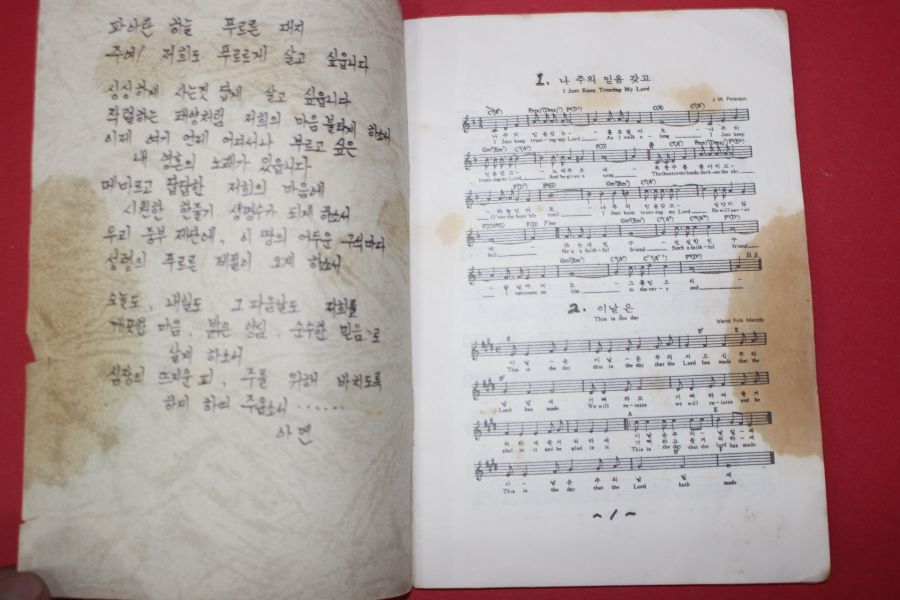 파아란 하늘 푸르른 대지
주여! 저희도 푸르르게 살고 싶읍니다
싱싱하게 사는것 답게 살고 싶읍니다
작렬하는 태양처럼 저희의 마음 불타게 하소서
이제 여기 언제 어디서나 부르고 싶은
내 영혼의 노래가 있읍니다
메마르고 답답한 저희의 마음에
시원한 한줄기 생명수가 되게 하소서
우리 중부 재단에, 이 땅의 어두운 구석마다
성령의 푸르른 계절이 오게 하소서
오늘도, 내일도 그 다음날도 저희를
깨끗한 마음 밝은 양심, 순수한 믿음으로
살게 하소서
심장의 뜨거운 피, 주를 위해 바치도록
하여 주옵소서 ......
아멘
1. 나 주의 믿음 갖고
I Just Keep Trusting My Lord
J.W. Peterson
나 주의 믿음 갖고 홀로 걸어도 나 주의
I just keep trust-ing my Lord As I walk a-long I just keep
믿음 갖고 노래 부르네
trust-ing my Lord And he gives a song The storm clouds dark-en the sky
하늘
O'er the heav'nly trail I just keep trust-ing my Lord He will never
fail He's a faith-ful friend Such a faith-ful friend
I can count on him to the ver-y end
D.S
2. 이날은
This is the day
World Folk Melody
이 날 은 이 날 은 주 의 지 으 신 주 의
This is the day this is the day that the Lord has made that the
날 일 세 기 뻐 하 고 기 뻐 하 며 즐 거
Lord has made We will re-joice we will re-joice and be
워 하 세 즐 거 워 하 세 이 날 은 주 의 날 일 세
glad in it and be glad in it This is the day that the lord has made
이 날 은 주 의 날 일 세
This is the day that the Lord hath made
~ 1 ~